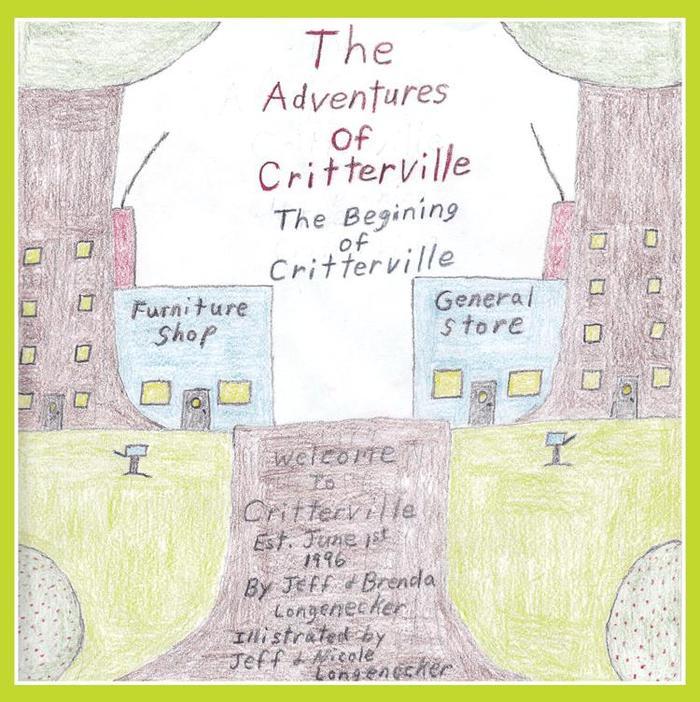 The
Adventures
Of
Critterville
The Begining
of
Critterville
Furniture
Shop
General
Store
Welcome
To
Critterville
Est. June 1st
1996
By Jeff & Brenda
Longenecker
Illistrated by
Jeff & Nicole
Longenecker